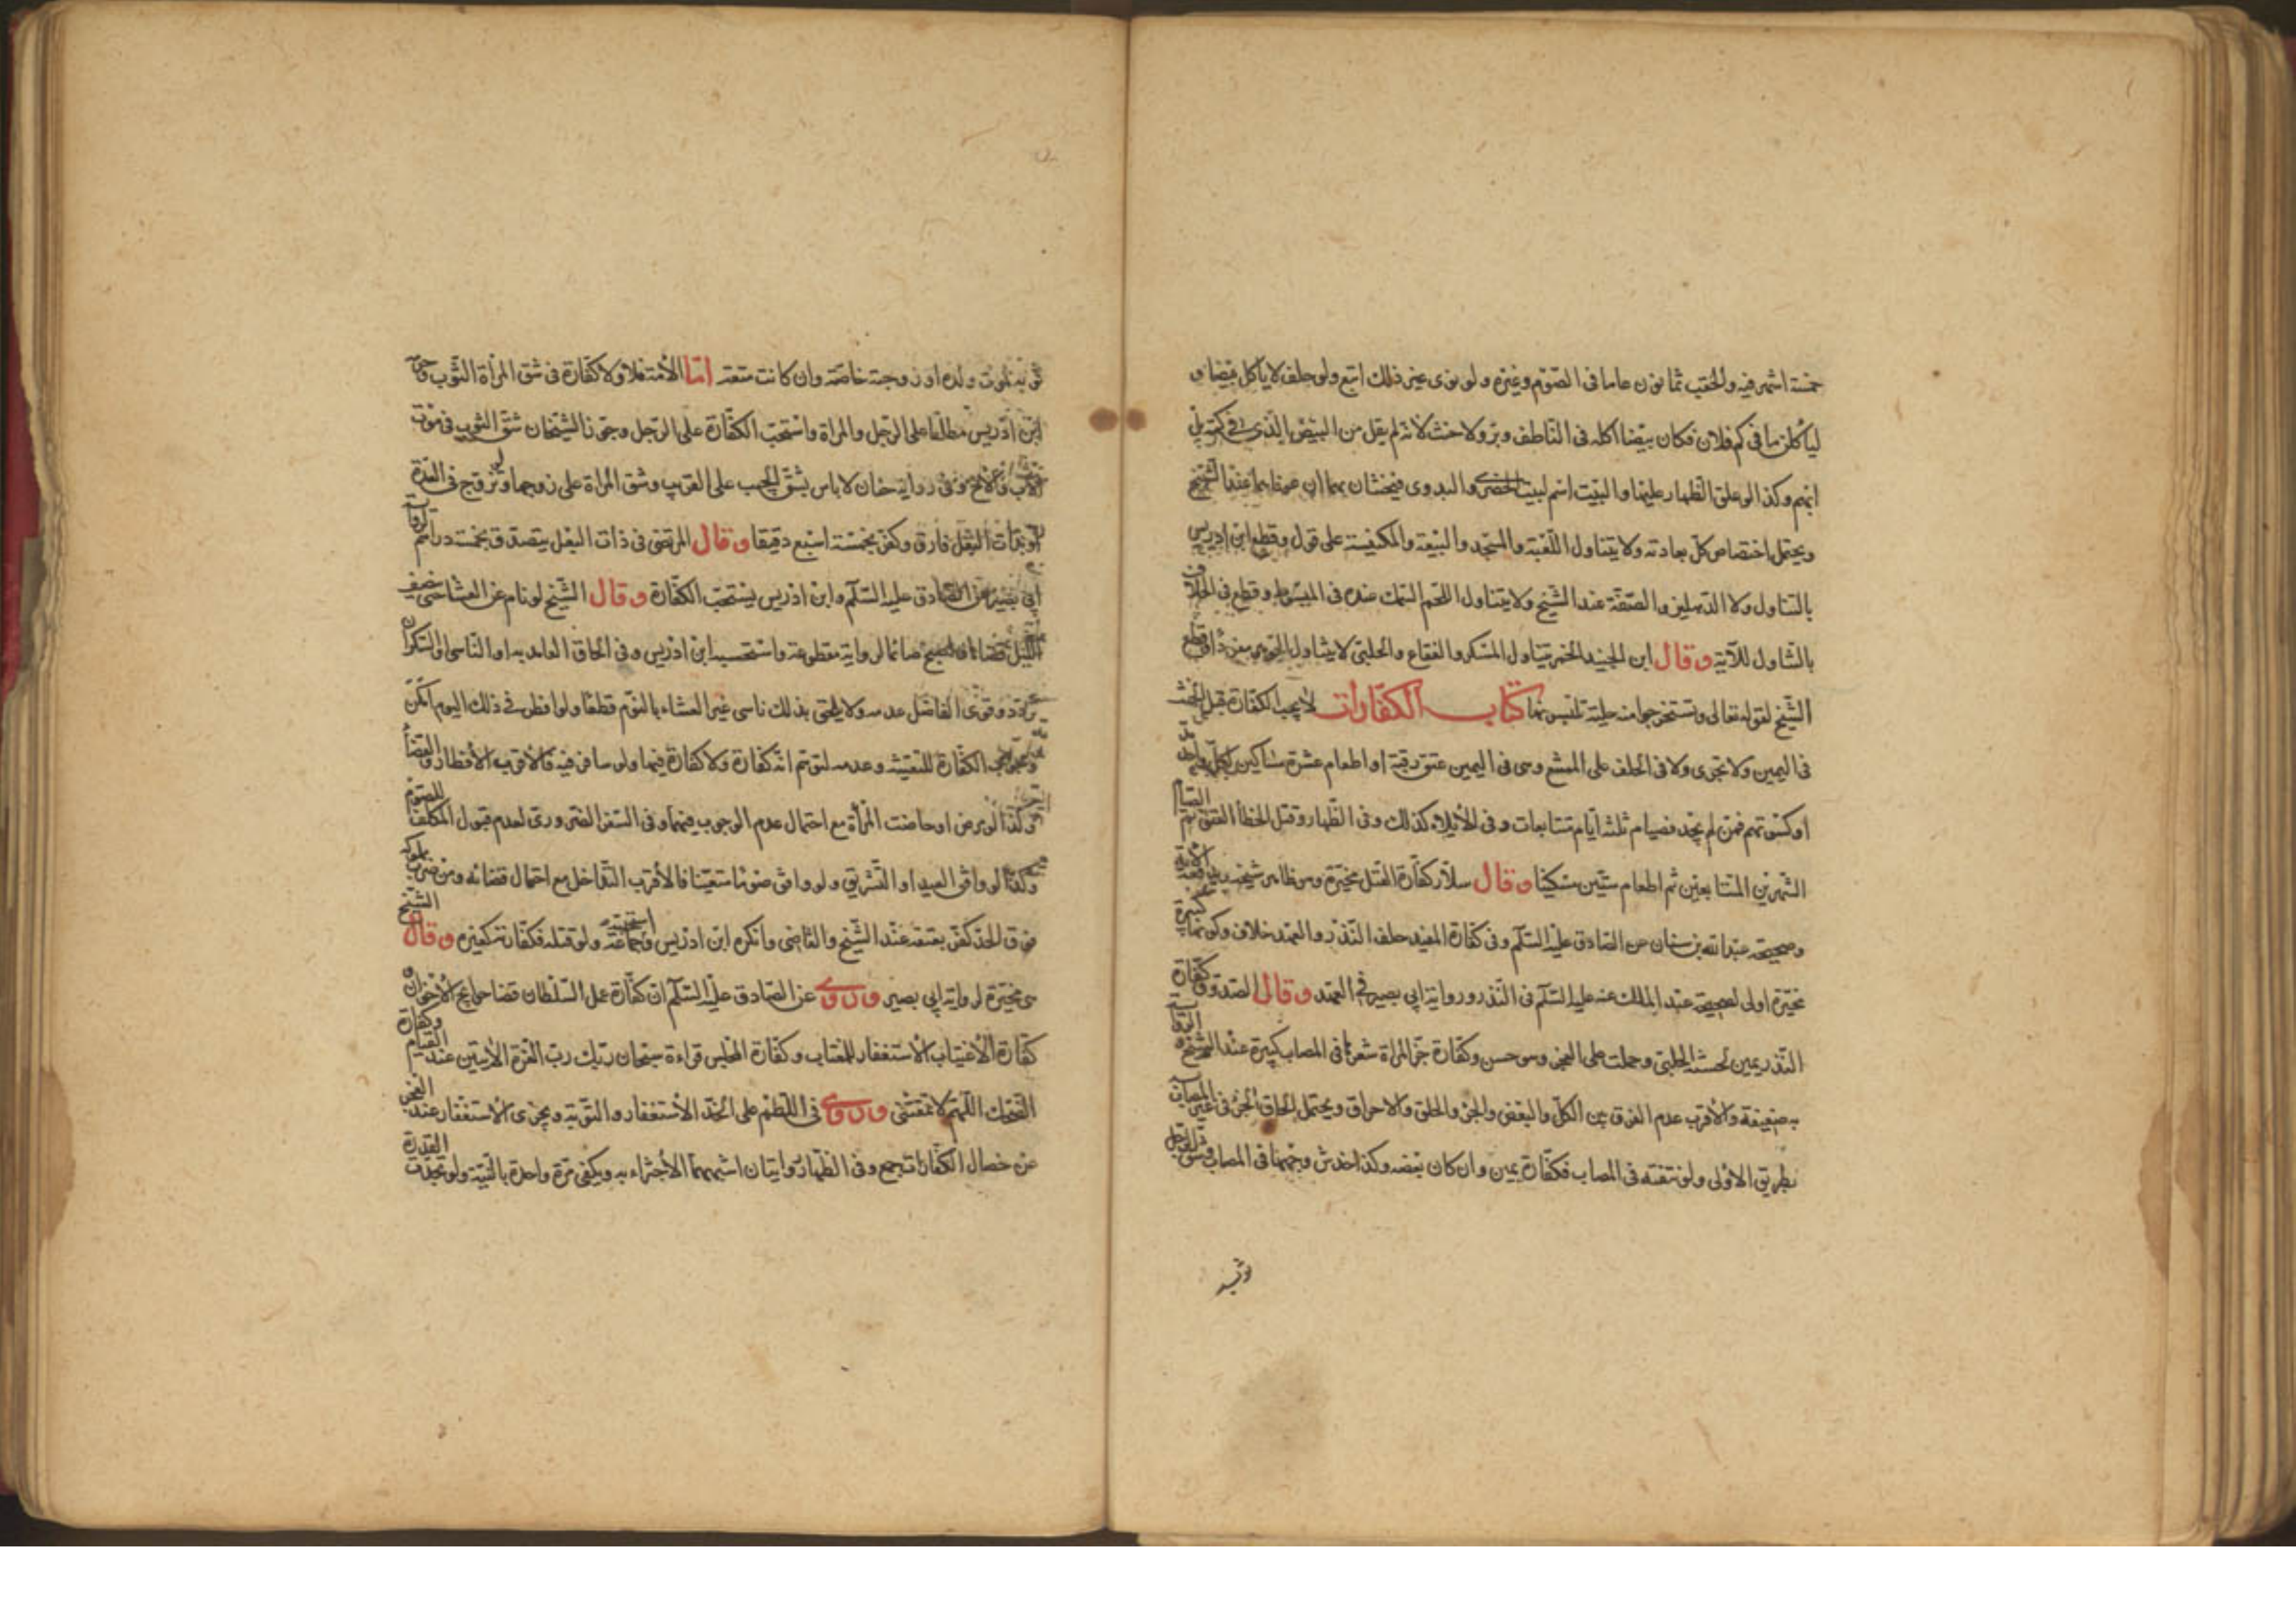 خمسة اشهر فيه والحقب ثمانون عاما فى الصّوم وغيره ولو نوى غير ذلك اتبع ولو حلف لا ياكل بيضا و
ليأكلن ما فى كم فلان فكان بيضا اكله فى الناطف وبرّ ولا حنث لانه لم يقل من البيض الذى فى كمه بل
ابهم وكذا لو علق الظهار عليها والبيت اسم لبيت الحضرى والبدوى فيحنثان بهما ان عرفا بهما عند الشيخ
ويحتمل اختصاص كلّ بعادته ولا يتناول الكعبة والمسجد والبيعة والكنيسة على قول وقطع ابن ادريس
بالتناول ولا الدهليز والصفّة عند الشيخ ولا يتناول اللحم السمك عنده فى المبسوط وقطع فى الخلاف
بالتناول للآية وقال ابن الجنيد الخمر يتناول المسكر والفقاع والحلبى لا يتناول
الشيخ لقوله تعالى وتستخرجوا منه حلية تلبسونها كتاب الكفارات لا يجب الكفارة قبل الحنث
فى اليمين ولا تجزى ولا فى الحلف على وهى فى اليمين عتق رقبة او اطعام عشرة مساكين لكل واحد
او كسوتهم فمن لم يجد فصيام ثلثة ايام متتابعات وفى الايلاء كذلك وفى الظهار وقتل الخطأ العتق ثم الصيام
الشهرين المتتابعين ثم اطعام ستّين مسكينا وقال سلّار كفارة القتل مخيّرة وهو ظاهر شيخه
وصحيحة عبد الله بن سنان عن الصادق عليه السّلم وفى كفارة المفيد خلف النذر والعهد خلاف وكونها كبيرة
مخيّرة اولى لصحيحة عبد الملك عنه عليه السّلم فى النّذر ورواية ابى بصير فى العهد وقال الصدوق كفّارة
النّذر يمين لحسنة الحلبى وحملت على العجز وهو حسن وكفّارة جزّ المراة شعرها فى المصاب كبيرة عند الشيخ
به ضعيفة والاقرب عدم الفرق بين الكلّ والبعض والجز والحلق والاحراق ويحتمل الحاق الجز فى غير المصاب
بطريق الاولى ولو نتفته فى المصاب فكفّارة يمين وان كان بعضه وكذا خدش وجهها فى المصاب وشق الرجل
ثوبه
ثوبه لموت ولده او زوجته خاصّة وان كانت متعة امّا الأمة فلا ولا كفّارة فى شق المراة الثّوب وحرّمه
ابن ادريس مطلقا على الرجل والمراة واستحبّ الكفّارة على الرّجل وجوّز الشيخان شقّ الثوب فى موت
الاب والاخ وفى رواية حنان لا باس بشقّ الجيب على القريب وشق المراة على زوجها ولو تزوّج فى العدّة
او بذات البعل فارق وكفّر بخمسة اصبع دقيقا وقال المرتضى فى ذات البعل يتصدق بخمسة دراهم لرواية
ابى بصير عن الصّادق عليه السّلم وابن ادريس يستحبّ الكفّارة وقال الشّيخ لو نام عن العشا حتى نصف
الليل قضاها واصبح صائما لرواية مقطوعة واستحسبه ابن ادريس وفى الحاق العامد به او الناسى او السّكران
تردد وقوّى الفاضل عدمه ولا يلحق بذلك ناسى غير العشاء بالنوم قطعًا ولو افطر فى ذلك اليوم امكن
وجوب الكفّارة للتعيّنه وعدمه لتوهّم انّه كفّارة ولا كفّارة فيها ولو سافر فيه فالاقرب الافطار والقضأ
وكذا لو مرض او حاضت المرأة مع احتمال عدم الوجوب فيهما وفى السفر الضّرورى لعدم قبول المكلّف للصّوم
وكذا لو وافق العيد او التشريق ولو وافق صومًا متعيّنا فالأقرب التّداخل مع احتمال قضائه ومن ضرب مملوكه
فوق الحدّ كفّر بعتقه عند الشّيخ والقاضى وانكره ابن ادريس واستحبّه جماعة ولو قتله فكفّارته كغيره وقال الشيخ
هى مخيّرة لرواية ابى بصير وروى عن الصّادق عليه السّلم انّ كفّارة عمل السّلطان قضا حوايج الاخوان
وكفارة كفّارة الاغتياب الاستغفار للمغتاب وكفّارة المجلس قراءة سبحان ربّك ربّ العزّة الآيتين عند القيام
الضّحك اللّهم لا تمقتنى وروى فى اللّطم على الخدّ الاستغفار والتّوبة ويجزى الاستغفار عند العجز
عن خصال الكفّارات جمع وفى الظهار روايتان اشبههما الأجتزاء به ويكفى مرّة واحدة بالنّيّة ولو تجدّدت القدرة